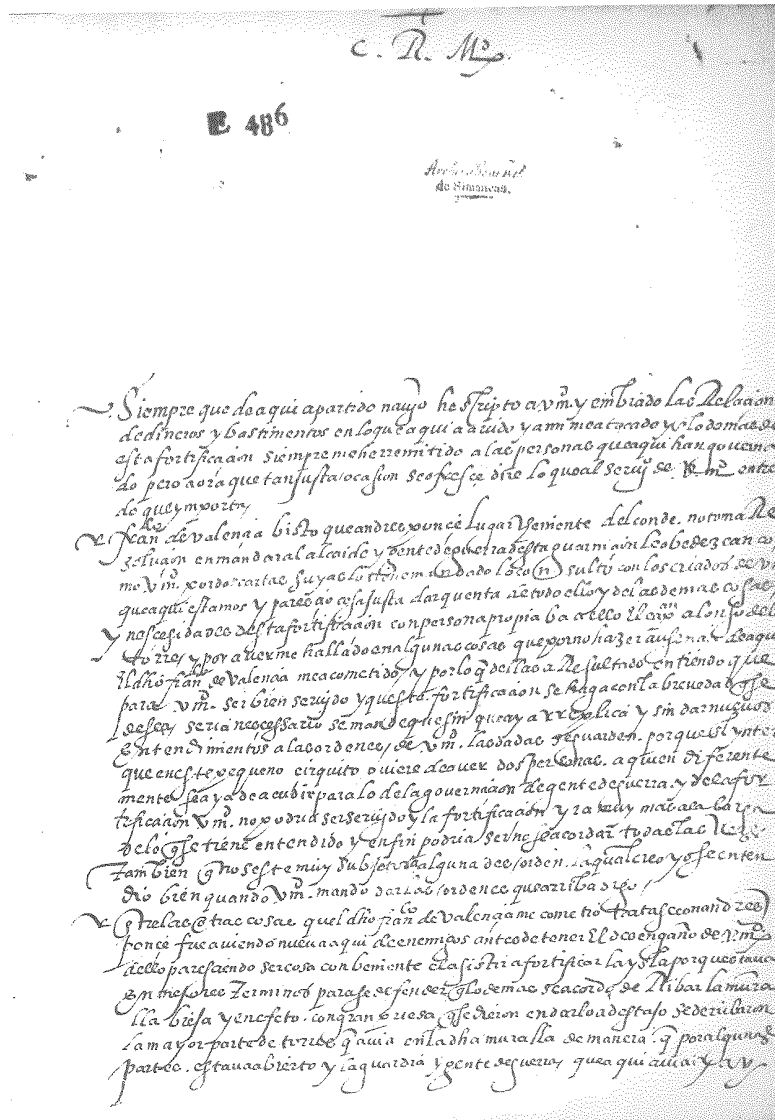 C. R. Mᵈ.
E 486
Archivo General
de Simancas.
Siempre que de aqui a partido navjo he scripto a vmᵈ. y embiado las Relacion
de dineros y bastimentos en lo que aqui a avido y an me atocado y lo demas de
esta fortificaçion siempre me he rremitido a las personas que aqui han governa
do pero aora que tan justa ocasion se ofresçe dire lo que al servjº de Vmᵈ. entre
do que ymporta
franᶜᵒ de valençia bisto que andres ponçe lugar theniente del conde. no toma Re
soluçion en mandar al alcaide y gente de guerra desta guarniçion le obedezcan co
mo Vmᵈ. por dos cartas suyas lo tiene mandado lo consulto con los criados de Vm
que aqui estamos y paresçio cosa justa dar quenta de todo ello y de las demas cosas
y nesçesidades desta fortificaçion con persona propia ba a ello El capᵃⁿ alonso de l
torres y por averme hallado en algunas cosas que por no hazer ausençia de aqui
El dho franᶜᵒ de valençia me a cometido y por lo q̃ dellas a Resultado entiendo que
para Vmᵈ. ser bien servjdo y questa fortificaçion se haga con la brevedad q̃ se
desea seria nesçessario se mande que sin que aya rreplica y sin dar nuevos
Entendimientos a las ordenes de Vmᵈ. las dadas se guarden. porque si ynter
que en este pequeno çirquito oviere de aver dos personas. a quien diferente
mente se aya de acudir para lo de la governaçion de gente de guerra. y de la for
tificaçion Vmᵈ. no podria ser servjdo y la fortificaçion yra muy mas a la larga
de lo q̃ se tiene entendido y en fin podria ser no se acordar todas las vezes
Tambien q̃ no seste muy subjeto a alguna desorden. la qual creo yo q̃ se enten
dio bien quando Vmᵈ. mando dar las ordenes qus arriba digo /
Entre las otras cosas quel dho franᶜᵒ de valençia me cometio tratasse con andres
ponçe fue aviendo nueva aqui de enemigos antes de tener El desengaño de Vmᵈ
dello paresçiendo ser cosa conbeniente el asistir a fortificar la ysla porque estava
En mejores terminos para se defender q̃ lo demas se acordo de deribar la mura
lla bieja y en efeto. con gran priesa q̃ se dieron en darlo a destajo se deribaron
la mayor parte de torres q̃ avia en la dha muralla de manera. q̃ por algunas
partes. estava abierto y la guardia y gente de guerra que aqui avia y ay